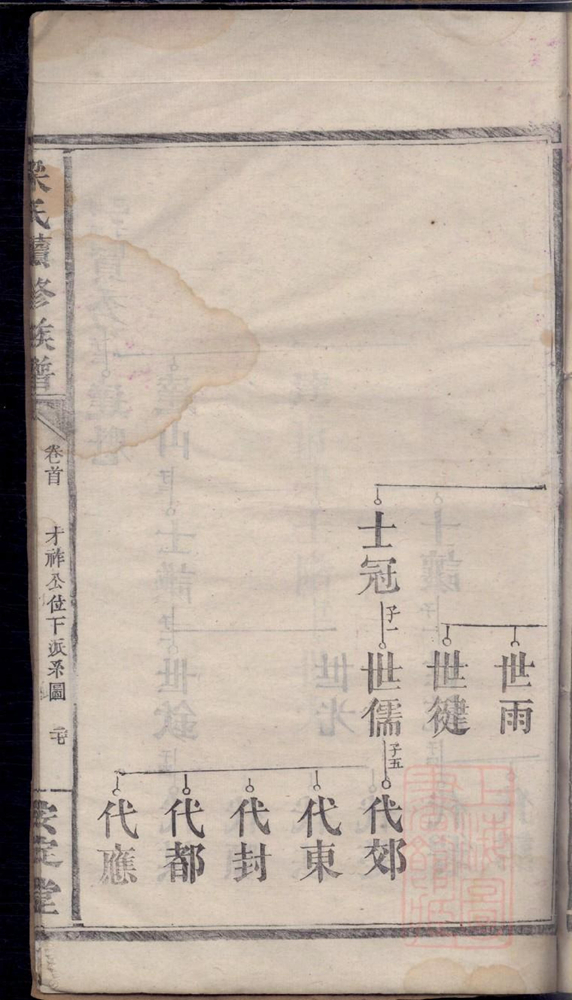 世雨
世健
士冠
子一
世儒
子五
代郊
代東
代封
代都
代應
氏續修族譜
卷首
才祚公位下派系圖
堂